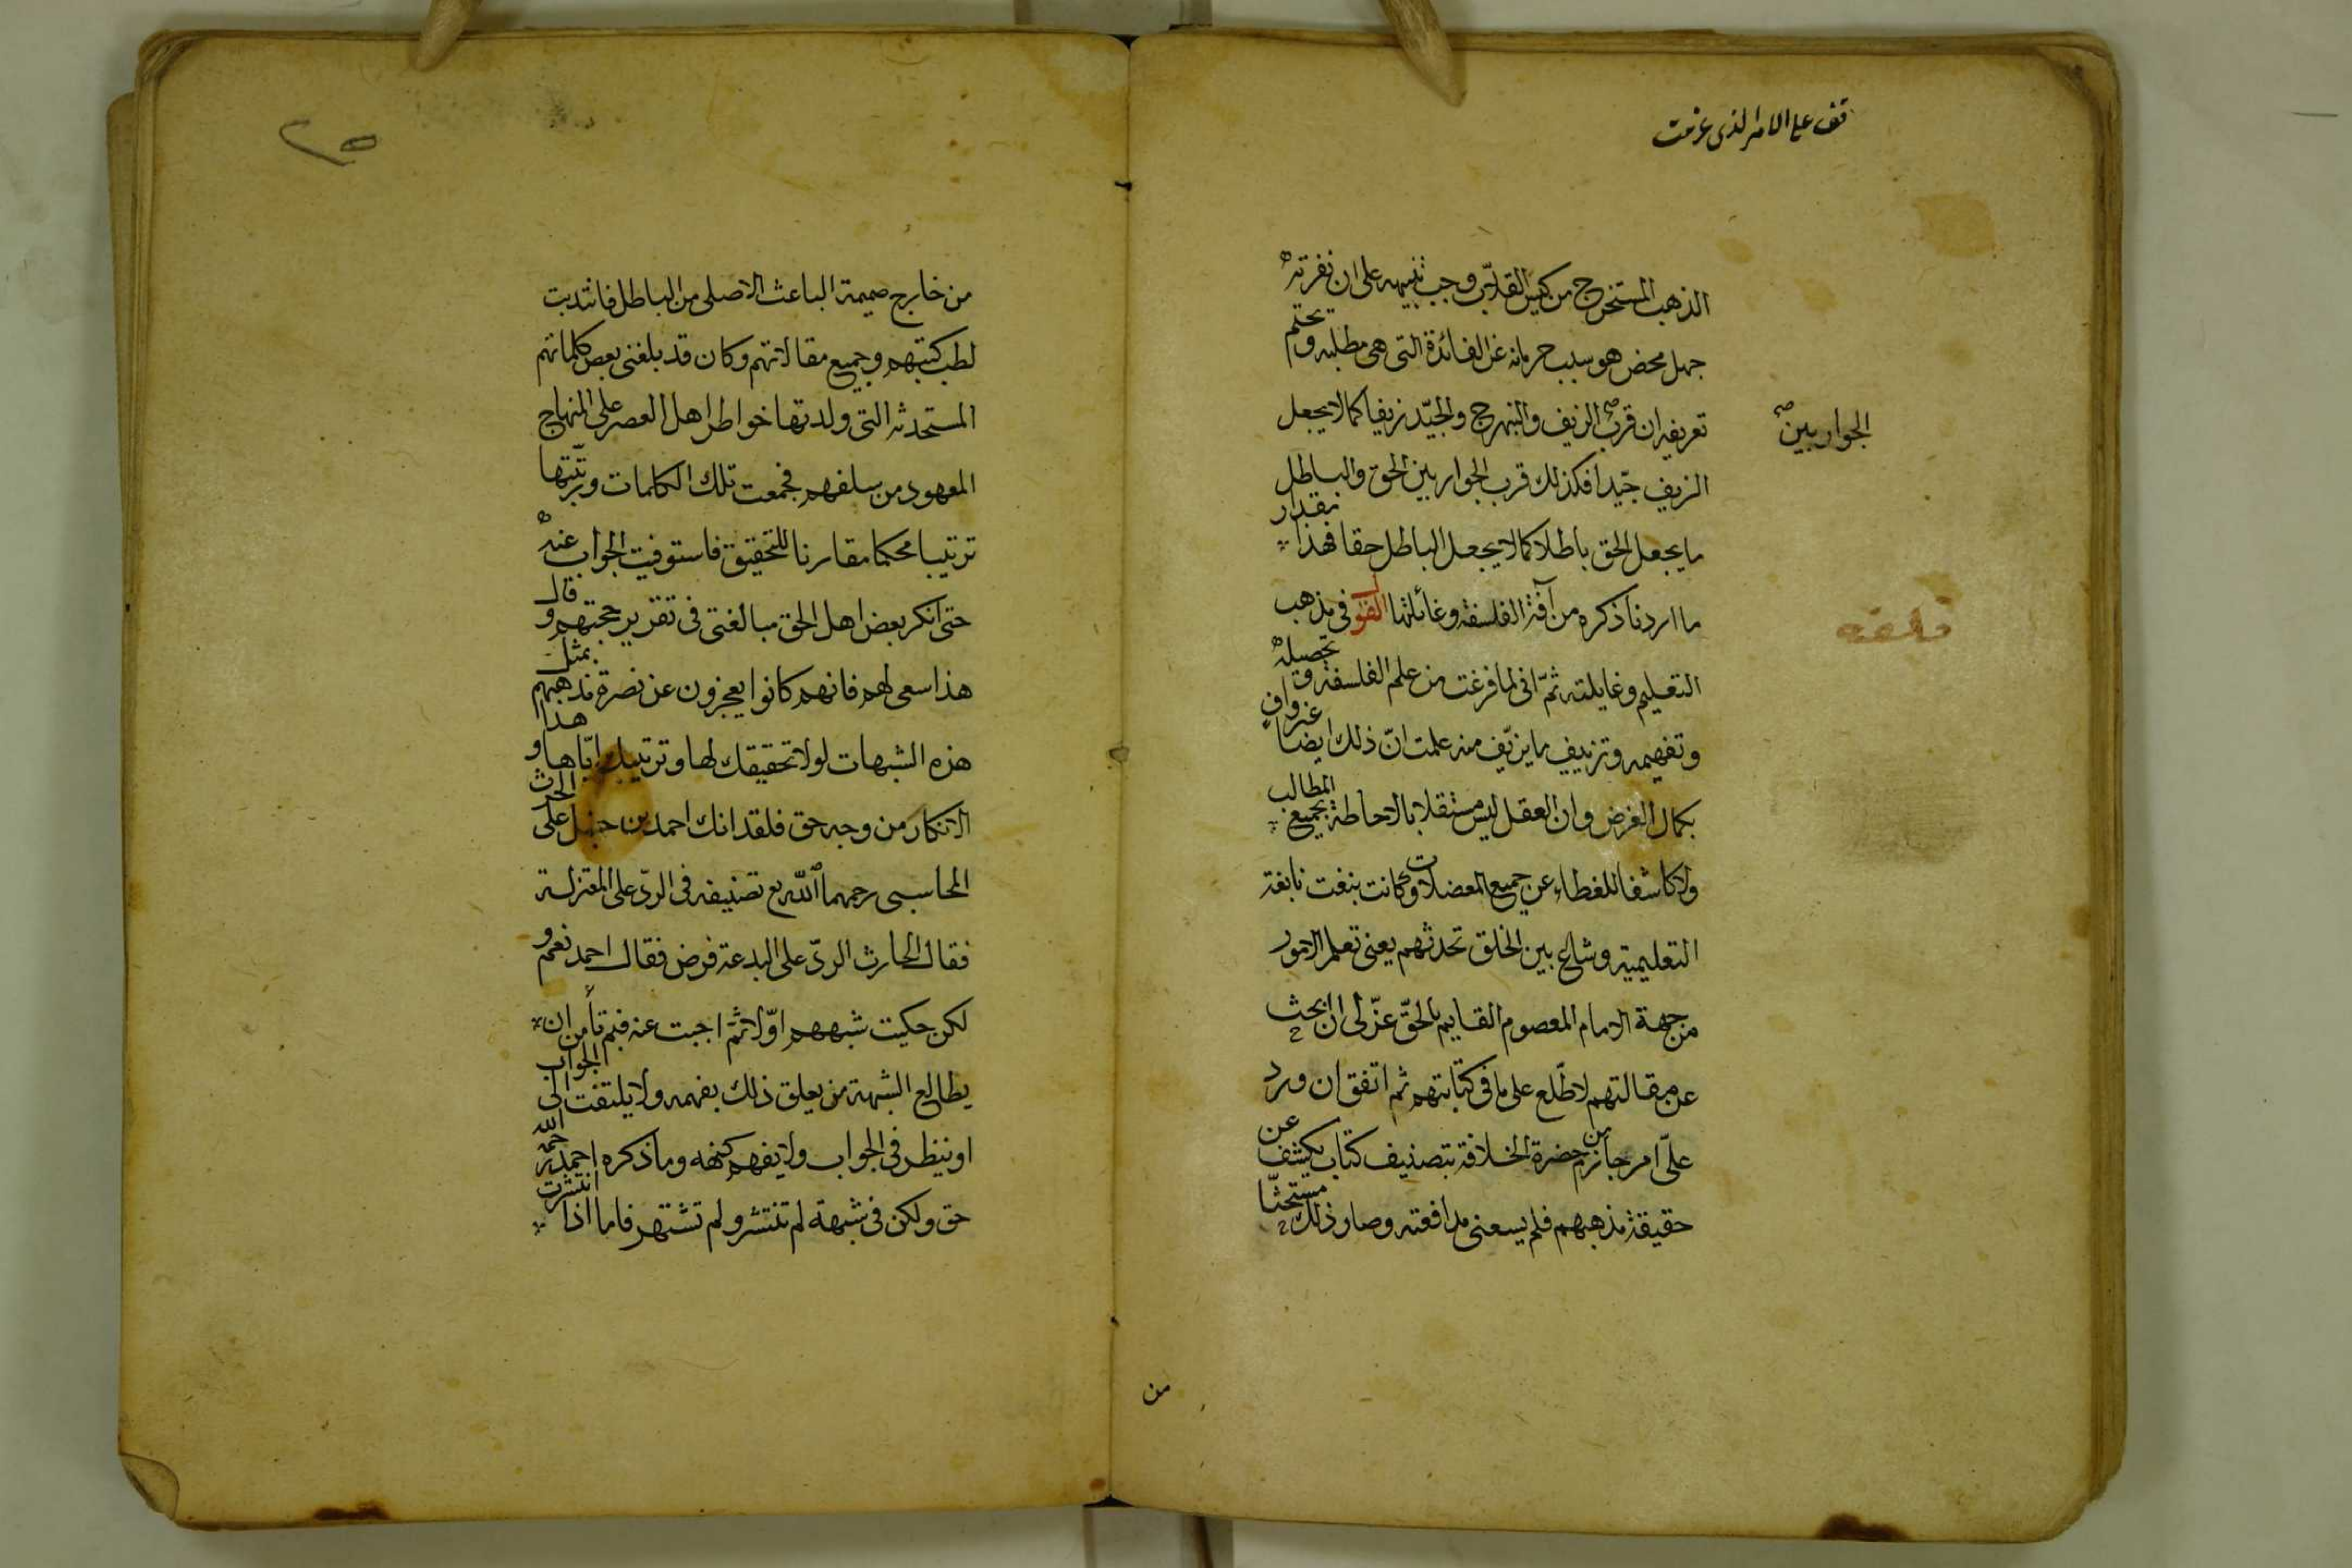 قف على الامر الذى عزمت
الذهب المستخرج من كيس القلاب وجب تنبيهه على ان نفرته
جهل محض هو سبب حرمانه عن الفائدة التى هى مطلبه وتحتم
تعريفه ان قرب الزيف والنبهرج والجيّد زيفا كما لا يجعل
الجوار بين صح
الزيف جيّدا فكذلك قرب الجوار بين الحق والباطل
ما يجعل الحق باطلا كما لا يجعل الباطل حقا فهذا بقدار
ما اردنا ذكره من آفة الفلسفة وغائلتها القول فى مذهب
التعليم وغايلته ثمّ انى لما فرغت من علم الفلسفة وتحصيله
وتفهيمه وتزييف ما يزيّف منه علمت انّ ذلك ايضا غير واف
بكمال الغرض وان العقل ليس مستقلا بالاحاطة بجميع المطالب
ولا كاشفا للغطاء عن جميع المعضلات وكانت بنغت نابغة
التعليمية وشاع بين الخلق تحدثهم يعنى تعلم الامور
من جهة الامام المعصوم القايم بالحقّ عنّ لى ان ابحث
عن مقالتهم لاطّلع على ما فى كتابتهم ثم اتفق ان ورد
علىّ امر جازم من حضرة الخلافة بتصنيف كتاب يكشف عن
حقيقة مذهبهم فلم يسعنى مدافعته وصار ذلك مستحثّا
من
من خارج صميمة الباعث الاصلى من الباطل فانتدبت
لطب كتبهم وجميع مقالاتهم وكان قد بلغنى بعض كلماتهم
المستحدثه التى ولدتها خواطر اهل العصر على المنهاج
المعهود من سلفهم فجمعت تلك الكلمات ورتّبتها
ترتيبا محكما مقارنا للتحقيق فاستوفيت الجواب عنه
حتى انكر بعض اهل الحق مبالغتى فى تقرير حجتهم وقال
هذا سعى لهم فانهم كانوا يعجزون عن نصرة مذهبهم بمثل
هذه الشبهات لولا تحقيقك لها وترتيبك ايّاها وهذا
الانكار من وجه حق فلقد انك احمد بن حنبل على الحرث
المحاسبى رحمهما الله يع تصنيفه فى الردّ على المعتزلة
فقال الحارث الردّ على البدعة فرض فقال احمد نعم و
لكن حكيت شبههم اوّلا ثمّ اجبت عنه فبم تأمن ان
يطالع الشبهة من يعلق ذلك بفهمه ولا يلتفت الى الجواب
او ينظر فى الجواب ولا يفهم كنهه وما ذكره احمد رحمه الله
حق ولكن فى شبهة لم تنتشر ولم تشتهر فاما اذا انتشرت